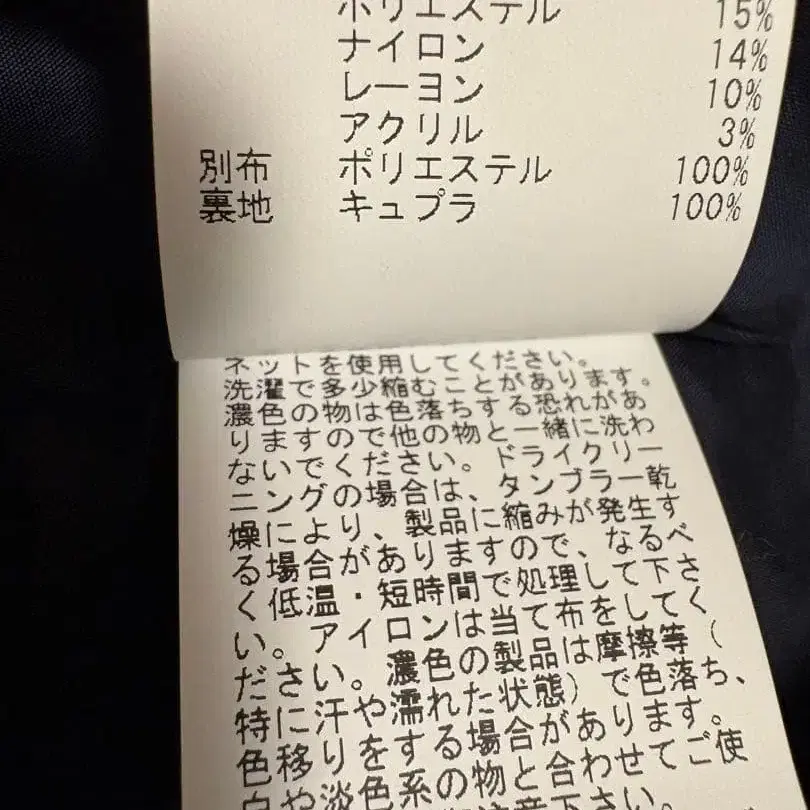 ポリエステル 15%
ナイロン 14%
レーヨン 10%
アクリル 3%
別布 ポリエステル 100%
裏地 キュプラ 100%
ネットを使用してください。
洗濯で多少縮むことがあります。
濃色の物は色落ちする恐れがあ
りますので他の物と一緒に洗わ
ないでください。ドライクリー
ニングの場合は、タンブラー乾
燥により、製品に縮みが発生す
る場合がありますので、なるべ
く低温・短時間で処理して下さ
い。アイロンは当て布をしてく
ださい。濃色の製品は摩擦等（
特に汗や濡れた状態）で色落ち、
色移りをする場合があります。
白や淡色系の物と合わせてご使
注意下さい。